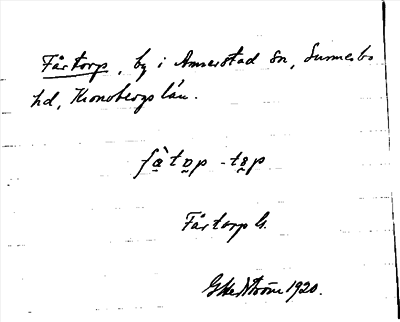 Fårtorp, by i Annerstad sn, Sunnerbo
hd, Kronobergs län.
fàtop -top
Fårtorp G.
G Hedström 1920.